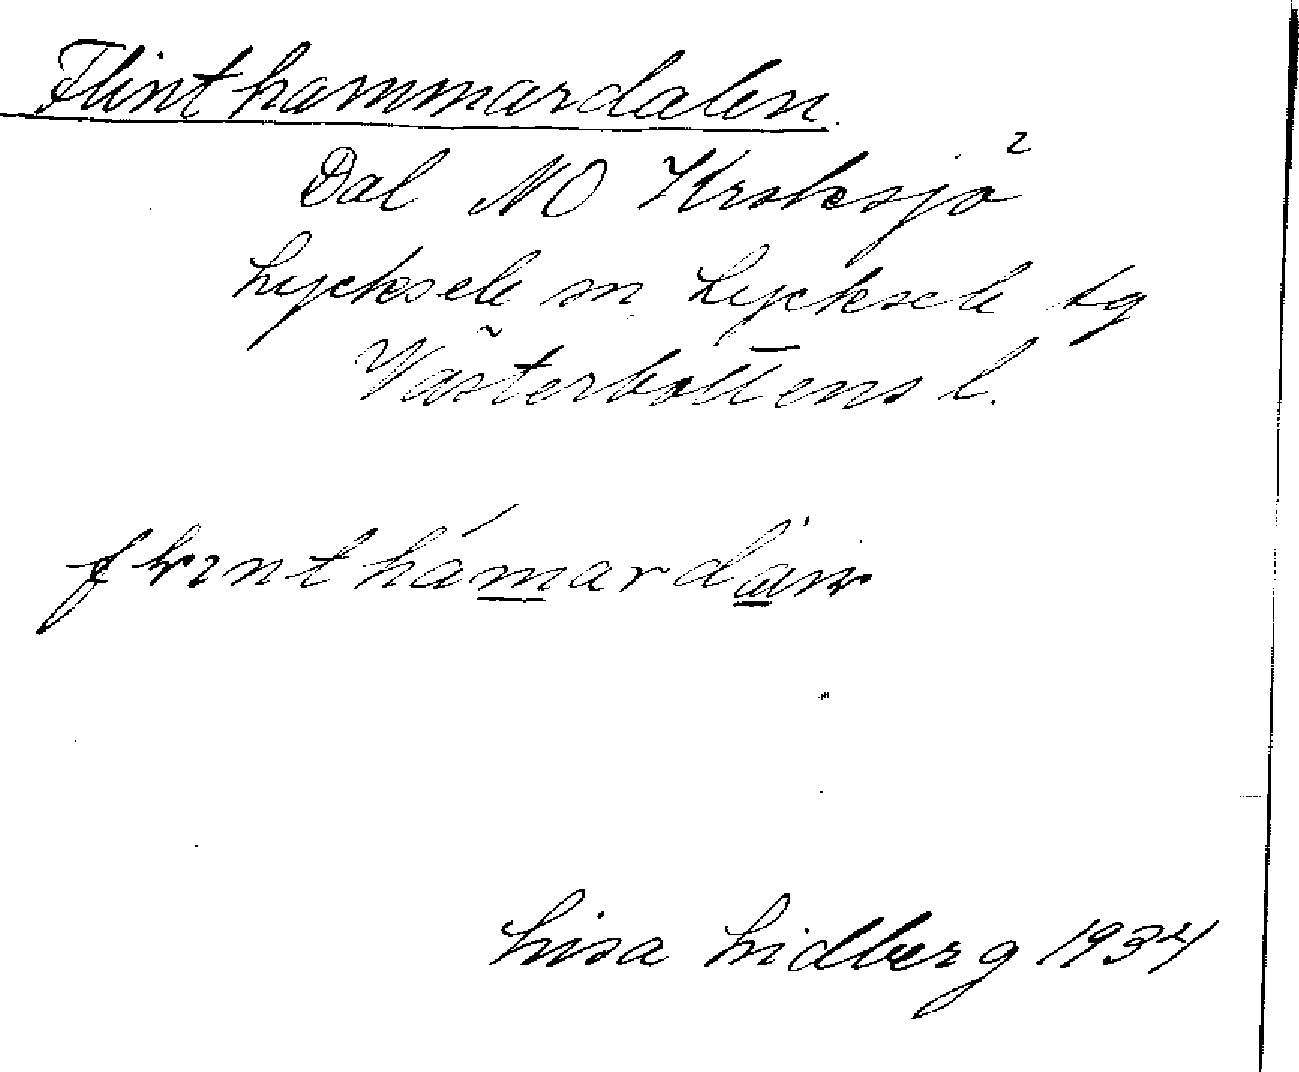 Flinthammardalen.
Dal NO Kroksjö
Lycksele sn, Lycksele tg
Västerbottens l.
Lisa Lidberg 1934